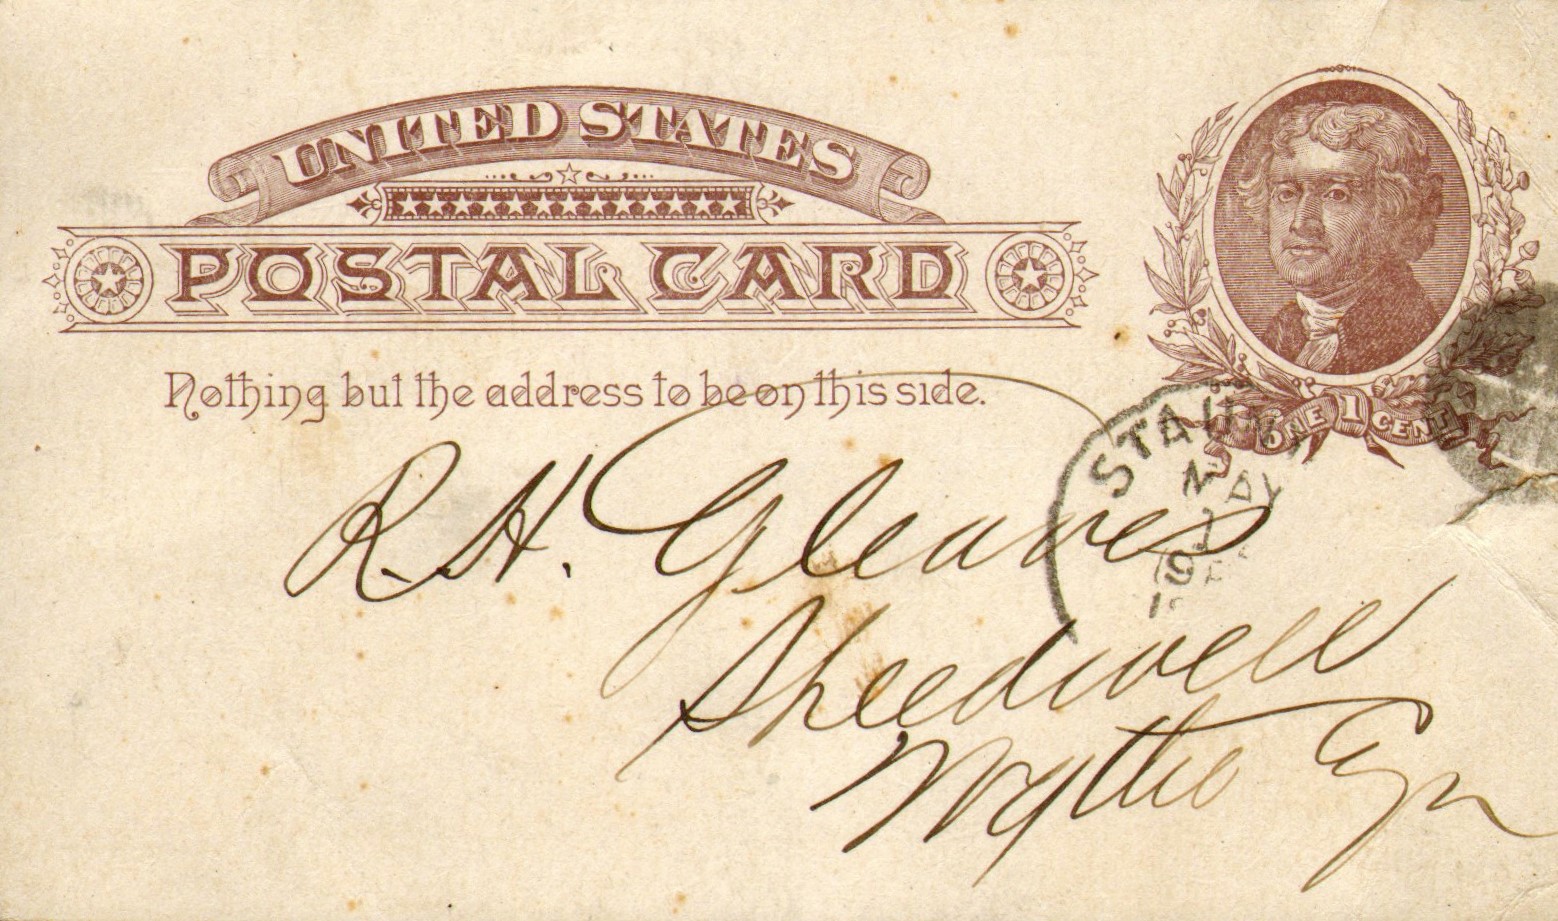 UNITED STATES
POSTAL CARD
Nothing but the address to be on this side.
ONE 1 CENT
STAU
MAY
R. H. Gleaves
Speedwell
Wythe